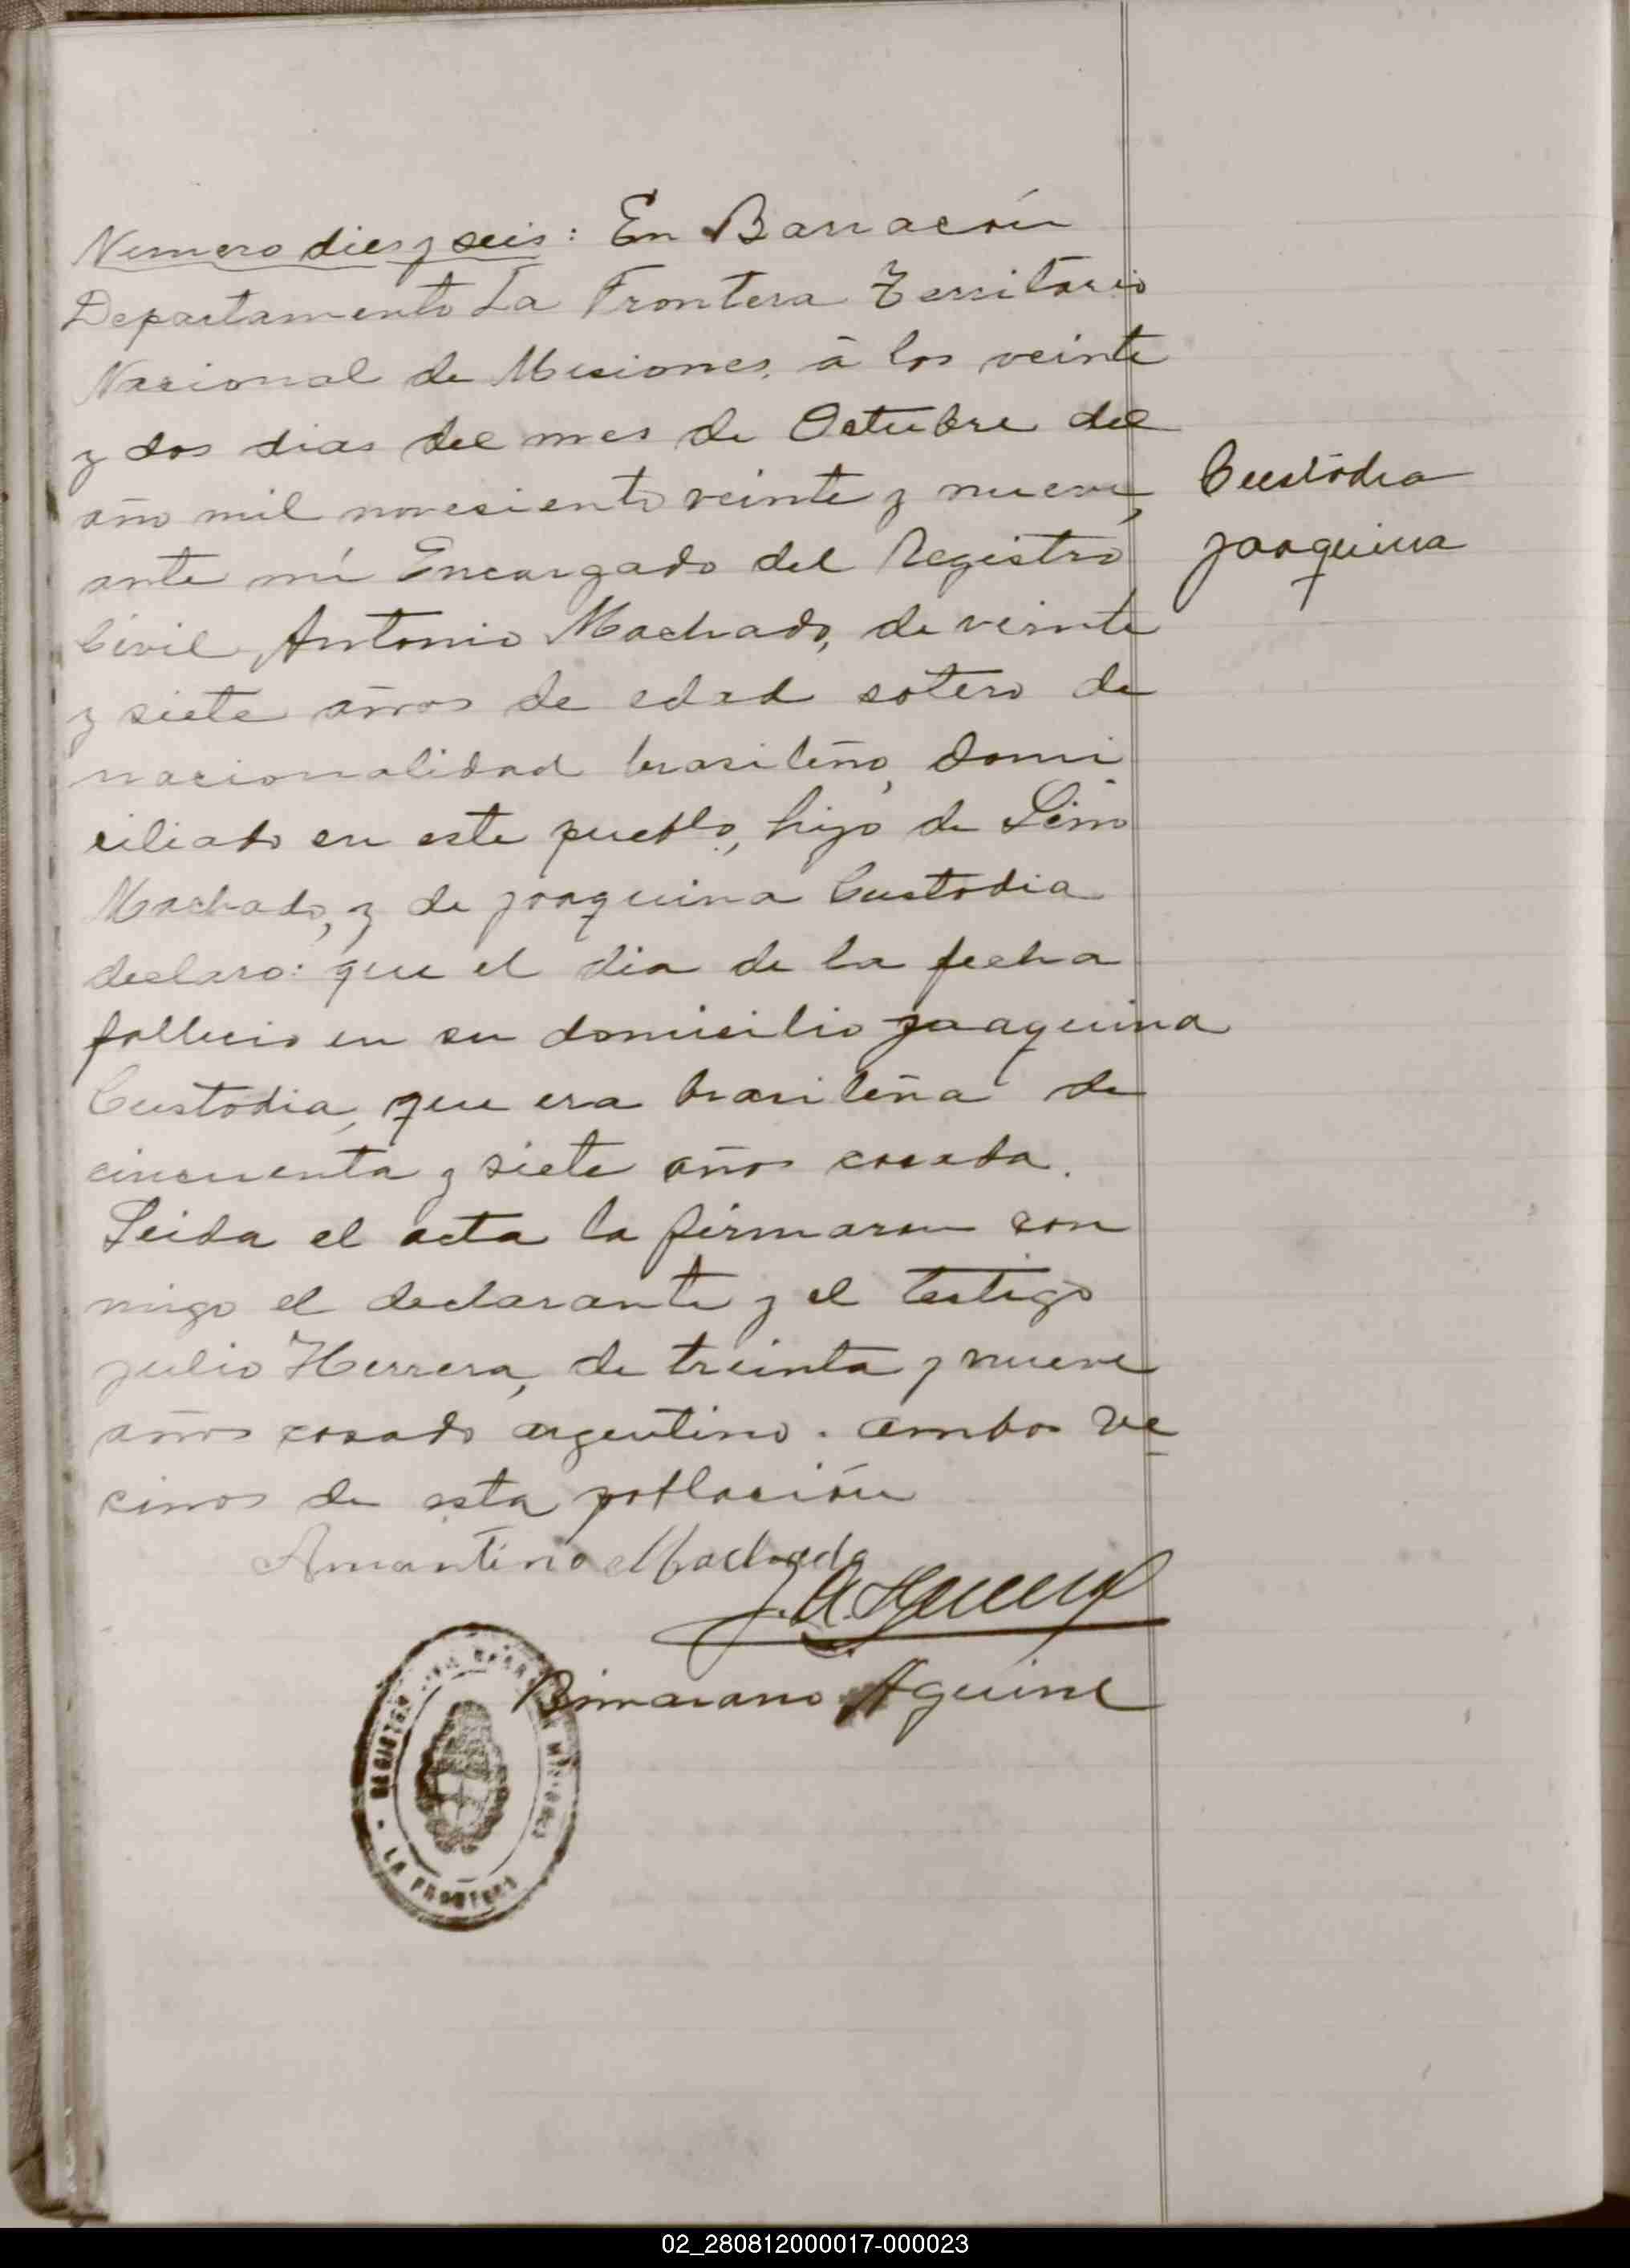 Numero dies y seis: En Barracón
Departamento La Frontera Territorio
Nacional de Misiones, á los veinte
y dos dias del mes de Octubre del
año mil novesiento veinte y nueve,
ante mí Encargado del Registro
Civil, Antonio Machado, de veinte
y siete años de edad sotero de
nacionalidad brasileño, domi
ciliado en este pueblo, hijo de Lino
Machado, y de Joaquina Custodia
declaro: que el dia de la fecha
fallecio en su domicilio Joaquina
Custodia, que era brasileña de
cincuenta y siete años casada.
Leida el acta la firmaron con
migo el declarante y el testigo
Julio Herrera, de treinta y nueve
años casado argentino. ambos ve
cinos de esta población
Custódia
Joaquina
Amantino Machado
J. A. Herrera
Aguirre
REGISTRO
MISIONES
- LA FRONTERA
02_280812000017-000023